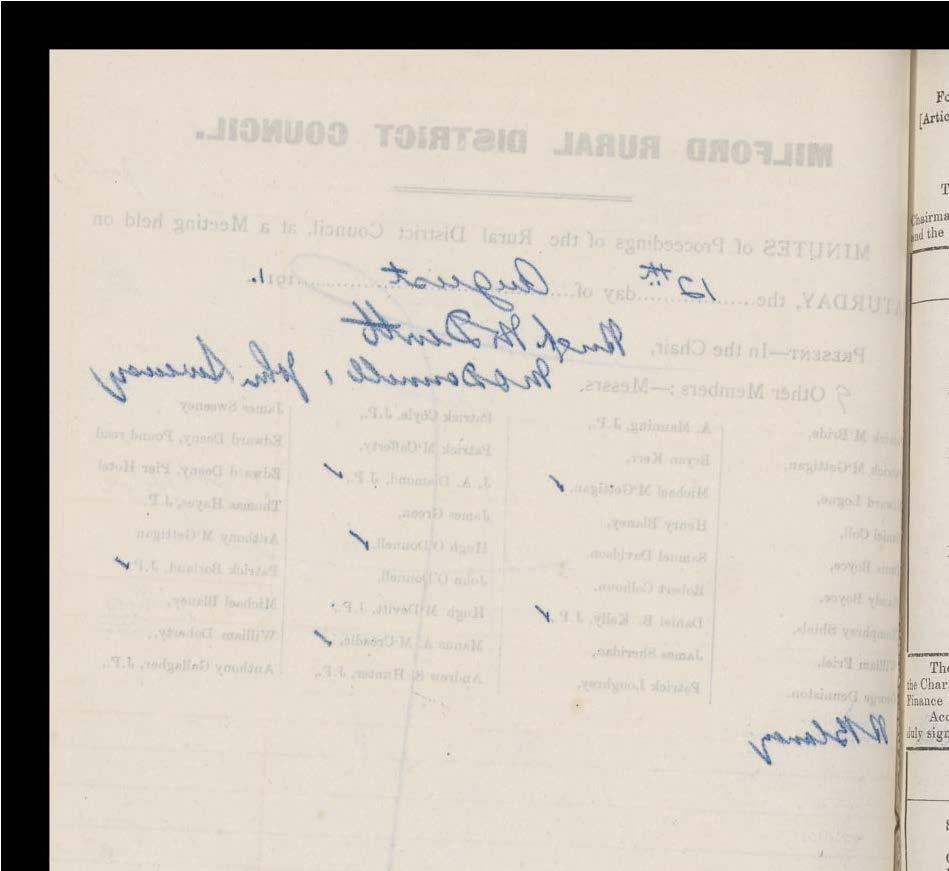 MILFORD RURAL DISTRICT COUNCIL.
MINUTES of Proceedings of the Rural District Council, at a Meeting held on
ATURDAY, the 12th day of August 1911.
PRESENT—In the Chair, Hugh McDevitt
Other Members :—Messrs. McDonnell, John Sweeney
M'Bride, A. Manning, J.P., Patrick Coyle, J.P., James Sweeney
M'Gettigan, Bryan Kerr, Patrick M'Cafferty, Edward Deeny, Pound road
Logue, Michael M'Gettigan, ✓ J. A. Diamond, J.P., ✓ Edward Deeny, Pier Hotel
Coll, Henry Blaney, James Green, Thomas Hayes, J.P.
Boyce, Samuel Davidson, Hugh O'Donnell, ✓ Anthony M'Gettigan
Boyce, Robert Colhoun, John O'Donnell, Patrick Borland, J.P. ✓
Shiels, Daniel B. Kelly, J.P., ✓ Hugh M'Devitt, J.P., Michael Blaney,
Friel, James Sheridan, Manus A. M'Creadie, ✓ William Doherty,
Denniston, Patrick Loughrey, Andrew S. Hunter, J.P., Anthony Gallagher, J.P.,
H Blaney
Fo
[Artic
T
Chairma
and the
The
the Char
Finance
Acc
duly sign
S